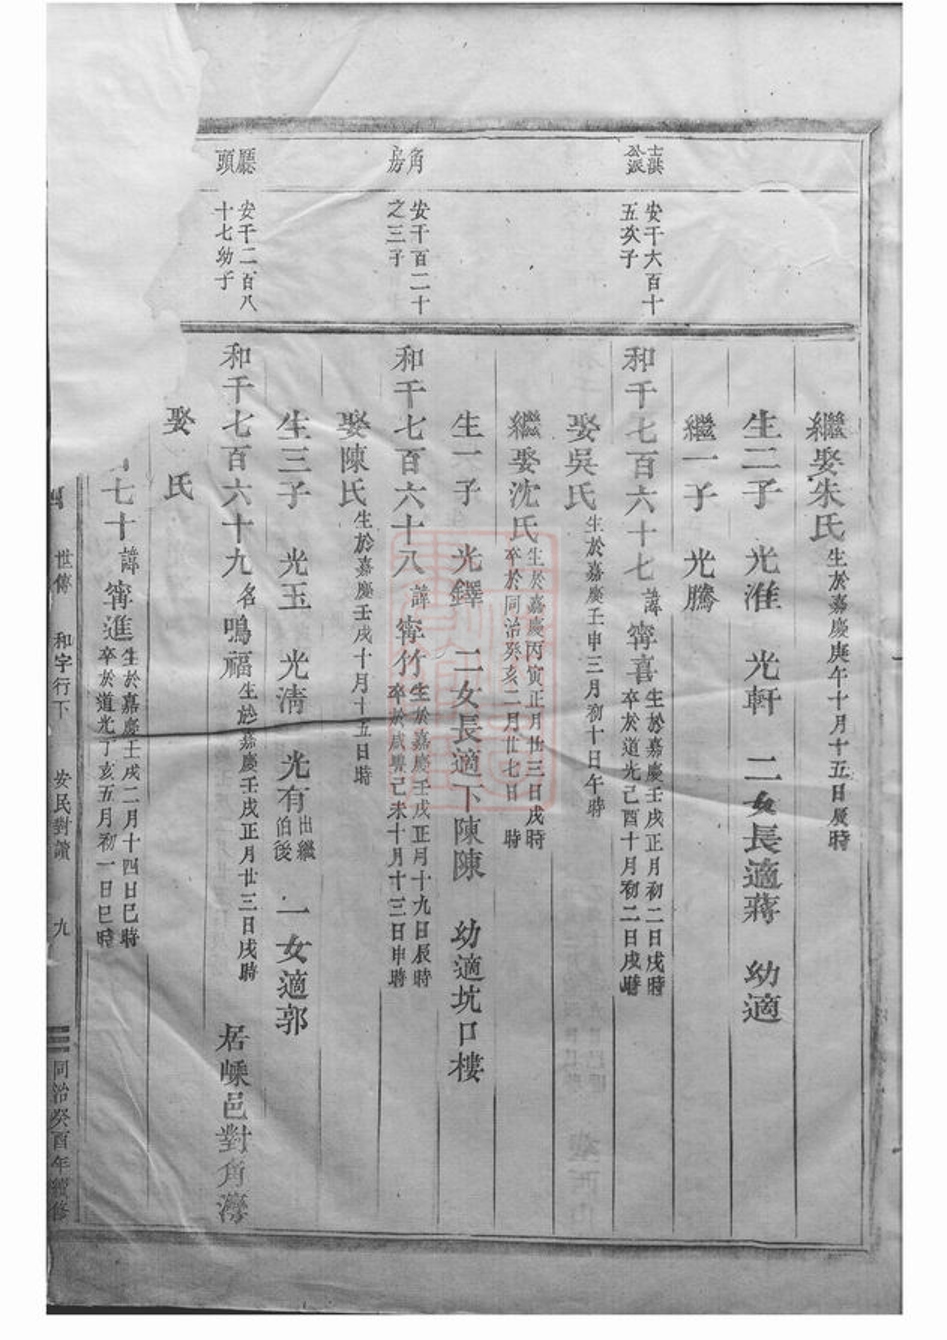 繼娶朱氏 生於嘉慶庚午十月十五日辰時
生二子 光淮 光軒 二女長適蔣 幼適
繼一子 光騰
士淇公派
安千六百十五次子
和千七百六十七 諱寗喜 生於嘉慶壬戌正月初二日戌時 卒於道光己酉十月初二日戌時
娶吳氏 生於嘉慶壬申三月初十日午時
繼娶沈氏 生於嘉慶丙寅正月廿三日戌時 卒於同治癸亥二月廿七日 時
生一子 光鐸 二女長適下陳陳 幼適坑口樓
角房
安千百二十之三子
和千七百六十八 諱寗竹 生於嘉慶壬戌正月十九日辰時 卒於咸豐己未十月十三日申時
娶陳氏 生於嘉慶壬戌十月十五日 時
生三子 光玉 光淸 光有 出繼伯後 一女適郭
廳頭
安千二百八十七幼子
和千七百六十九 名鳴福 生於嘉慶壬戌正月廿三日戌時 居嵊邑對角灣
娶 氏
七十 諱寗進 生於嘉慶壬戌二月十四日巳時 卒於道光丁亥五月初一日巳時
世傳 和字行下 安民對讀 九 同治癸酉年續修